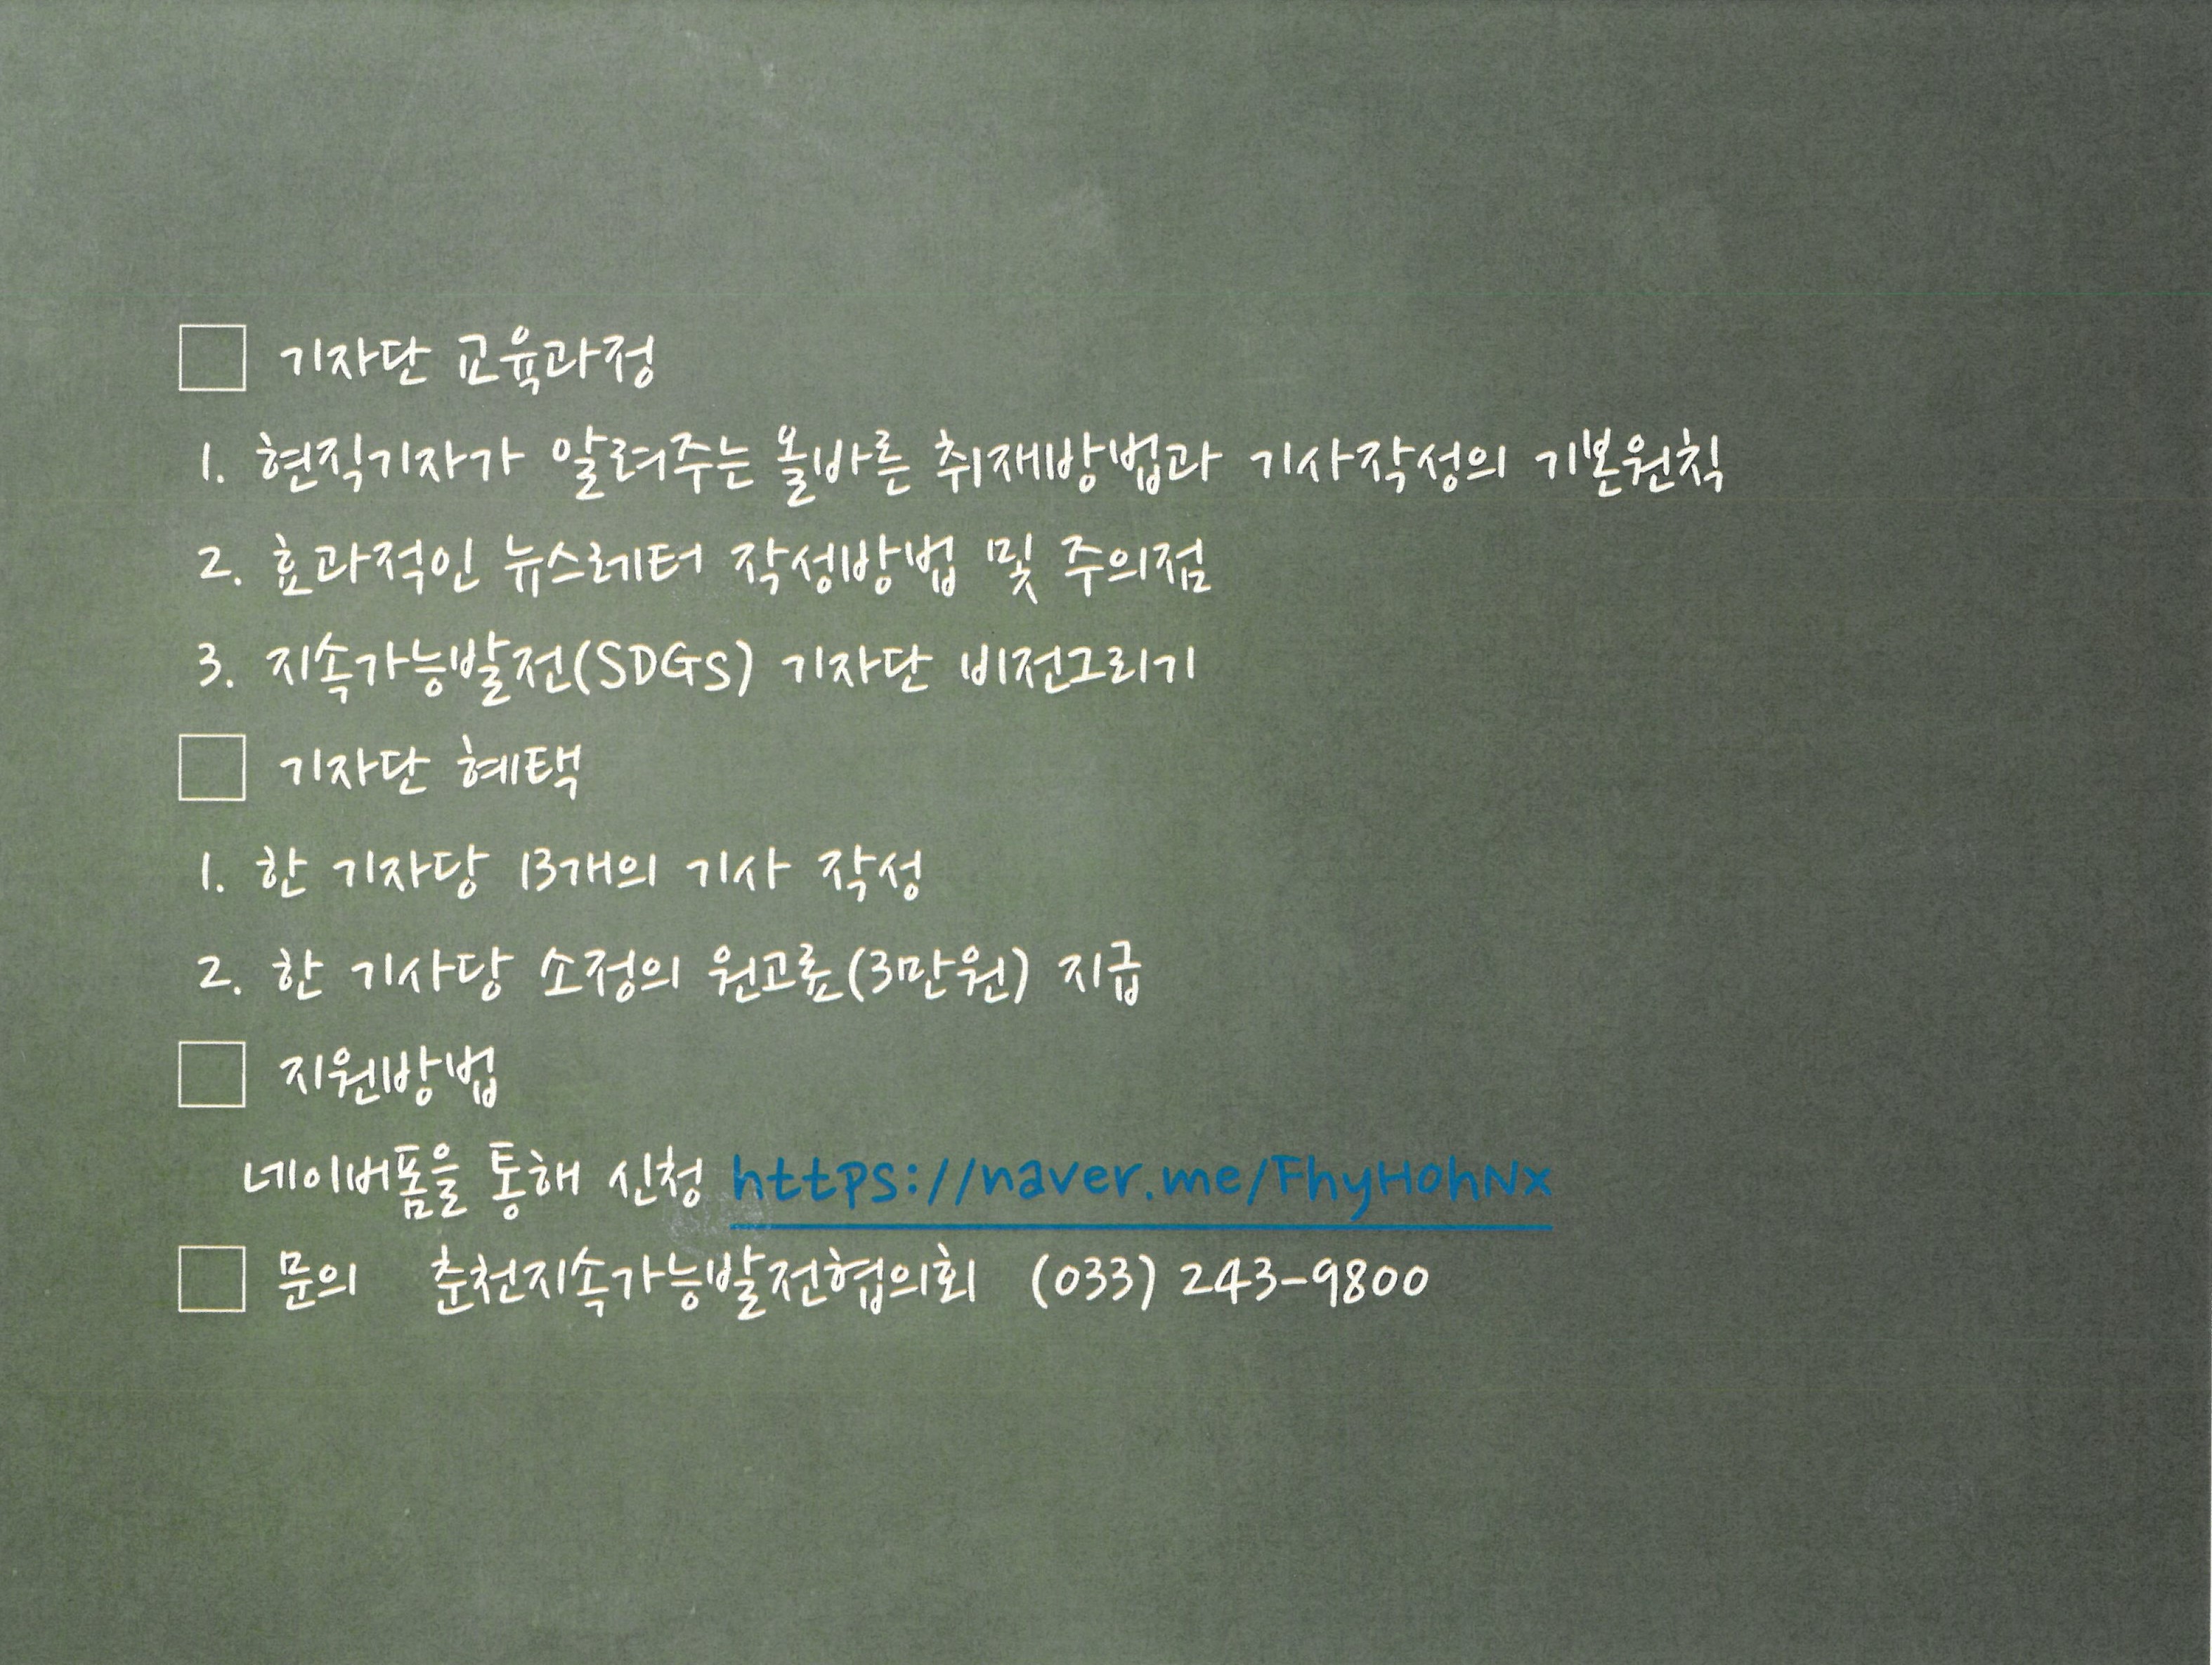 □ 기자단 교육과정
1. 현직기자가 알려주는 올바른 취재방법과 기사작성의 기본원칙
2. 효과적인 뉴스레터 작성방법 및 주의점
3. 지속가능발전(SDGs) 기자단 비전그리기
□ 기자단 혜택
1. 한 기자당 13개의 기사 작성
2. 한 기사당 소정의 원고료(3만원) 지급
□ 지원방법
네이버폼을 통해 신청 https://naver.me/FhyHohNx
□ 문의 춘천지속가능발전협의회 (033) 243-9800